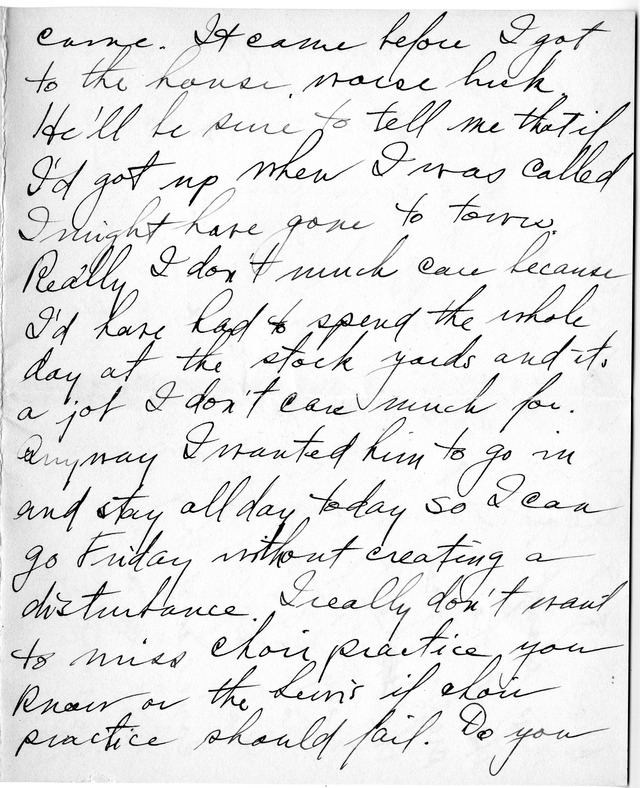 came. It came before I got
to the house, worse luck.
He'll be sure to tell me that if
I'd got up when I was called
I might have gone to town.
Really I don't much care because
I'd have had to spend the whole
day at the stock yards and its
a job I don't care much for.
Anyway I wanted him to go in
and stay all day today so I can
go Friday without creating a
disturbance. I really don't want
to miss choir practice you
know or the Lewis if choir
practice should fail. Do you